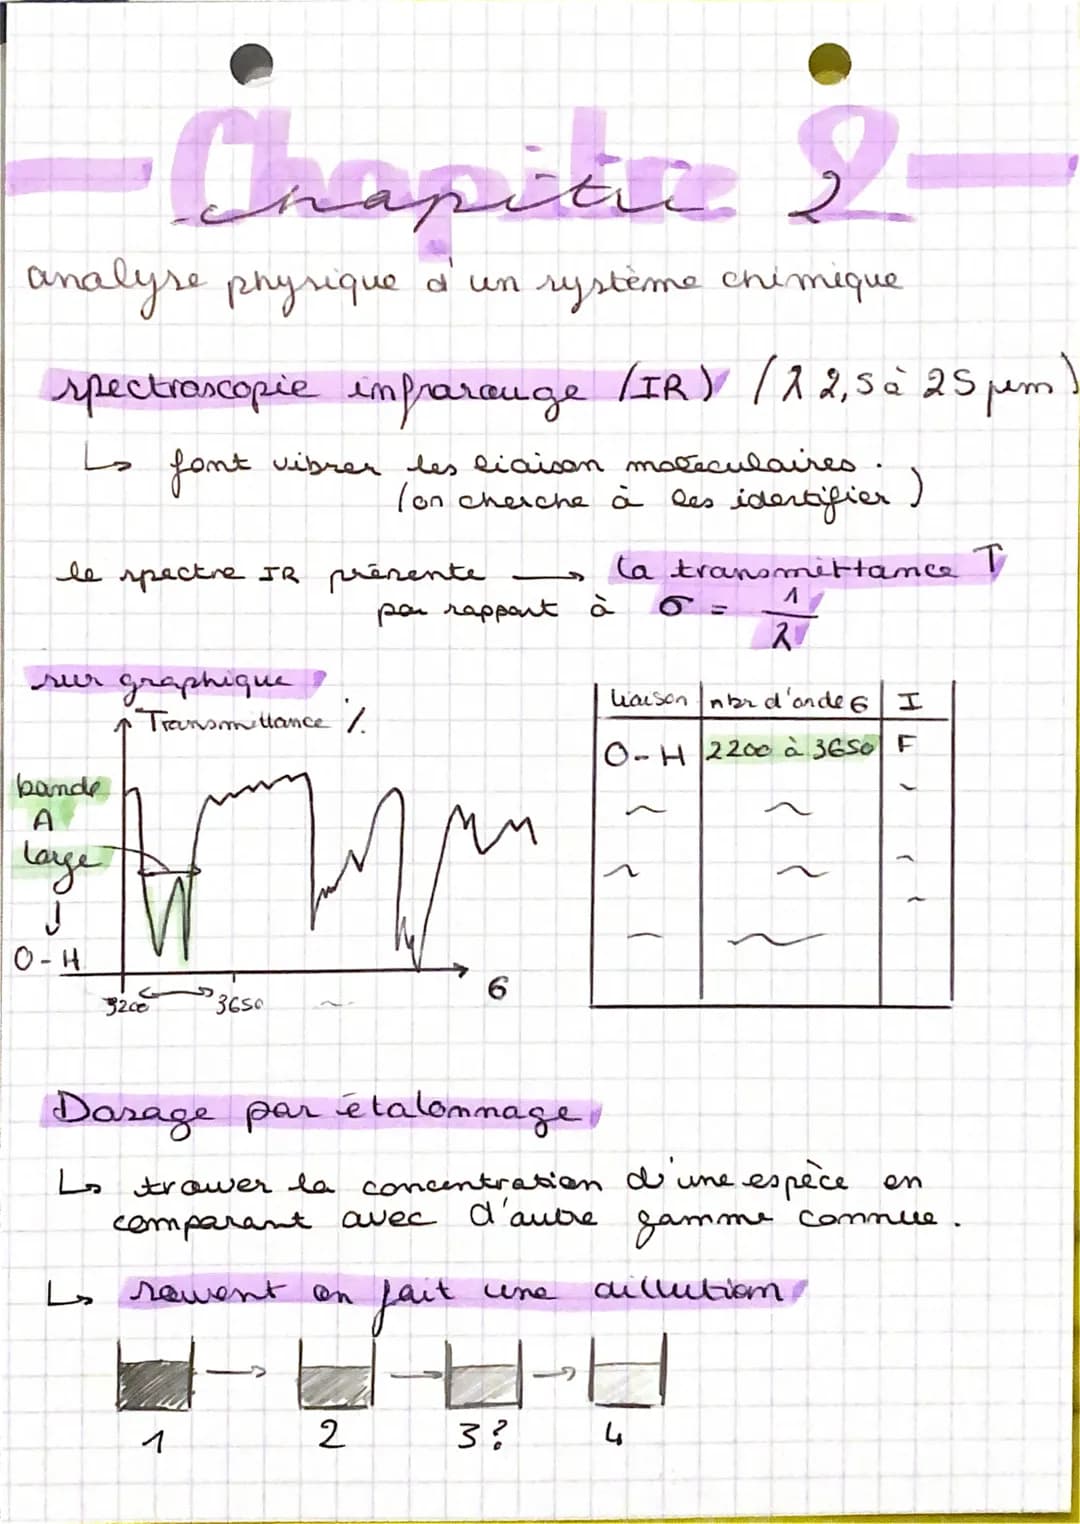 Chapitre 2
chapitre 2
analyse physique d'un système chimique
spectroscopie infrarouge (IR) (λ 2,5 à 25 µm)
↳ font vibrer les liaison moléculaires.
(on cherche à les identifier)
le spectre IR présente → la transmittance T
par rapport à σ = 1/λ
sur graphique
Transmittance %
bande
A
large
↓
O-H
3200 ↔ 3650
σ
liaison | nbr d'onde σ | I
O-H | 2200 à 3650 | F
Dosage par étalonnage
↳ trouver la concentration d'une espèce en
comparant avec d'autre gamme connue.
↳ souvent on fait une dillution
1 → 2 → 3? → 4